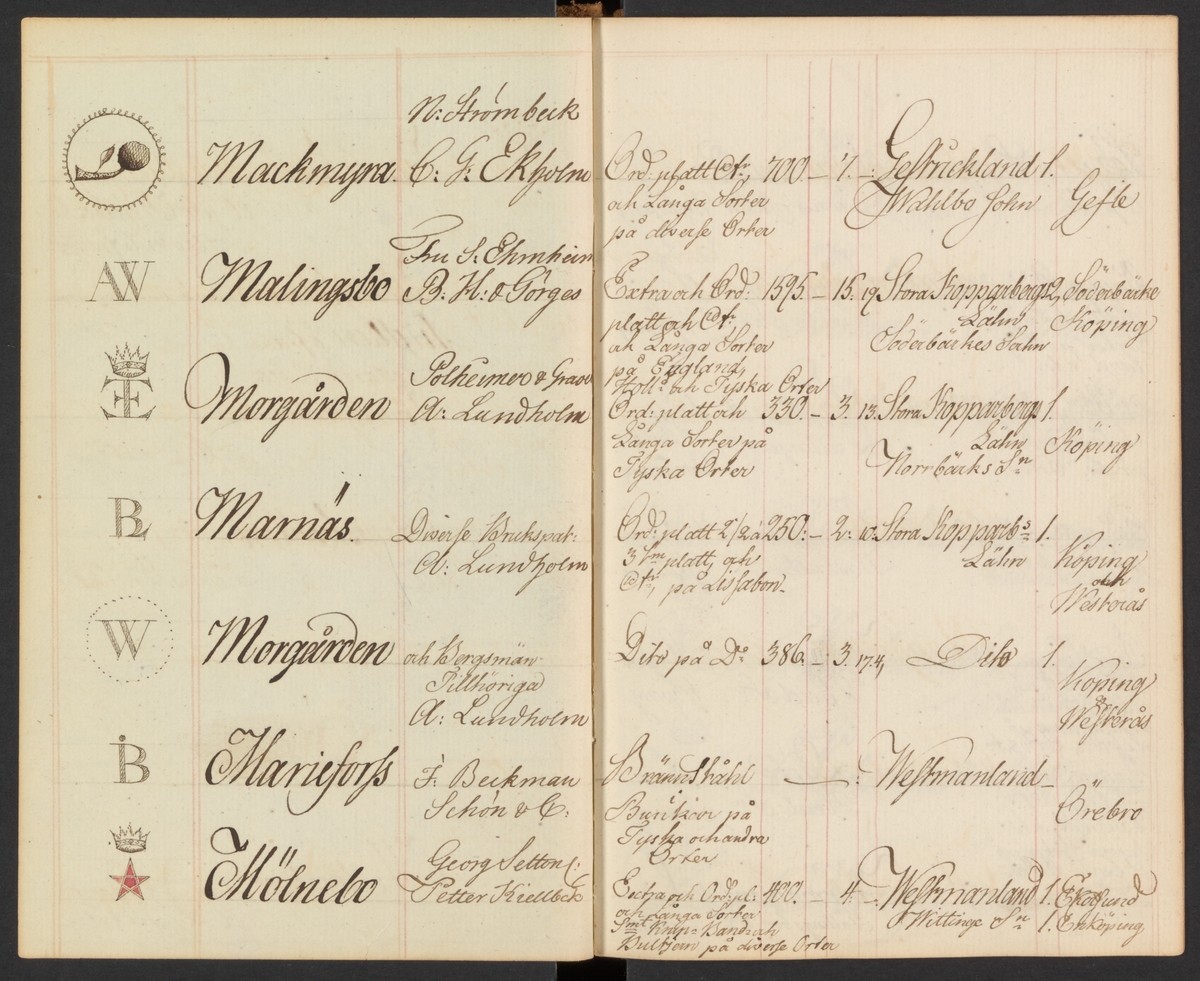 N: Strömbeck
Mackmyra. C: G: Ekholm Ord: platt Ctr, 700. – 7. –: Gestrickland 1.
och Långa Sorter Wahlbo Sohn Gefle
på diverse Orter
AW
Fru S: Ehrnheim
Malingsbo B: H: & Görges Extra och Ord: 1595. – 15: 19. Stora Kopparbergs 2, Söderbärke
platt och Ctr, Lähn Köping
och Långa Sorter Söderbärkes Sohn
på England,
Holl: och Tyska Orter
Polheimer & Grave
Morgården A: Lundholm Ord: platt och 330. – 3. 13. Stora Kopparbergs 1.
Långa Sorter på Lähn Köping
Tyska Orter Norrbärks Sn
BL
Marnäs. Diverse Brukspat: Ord: platt 2 1/2 à 250: – 2: 10. Stora Kopparbs 1.
A: Lundholm 3 tm platt, och Lähn Köping
Ctr, på Lissabon och
Westerås
W
Morgården och Bergsmän Dito på Do 386. – 3. 17.4, Dito 1.
Tillhöriga Köping
A: Lundholm &
Westerås
B
Marieforss F: Beckman Brännståhl – : Westmanland –
Schön & C: Buntkar på Örebro
Tyska och andra
Orter
Georg Setton C:
Mölnebo Petter Kiellbeck Extra och Ord: pl: 400. – 4. –: Westmanland 1. Ekolsund
och Långa Sorter Wittinge Sn 1. Enköping
Smt Knip= Band= och
Bultjern på diverse Orter